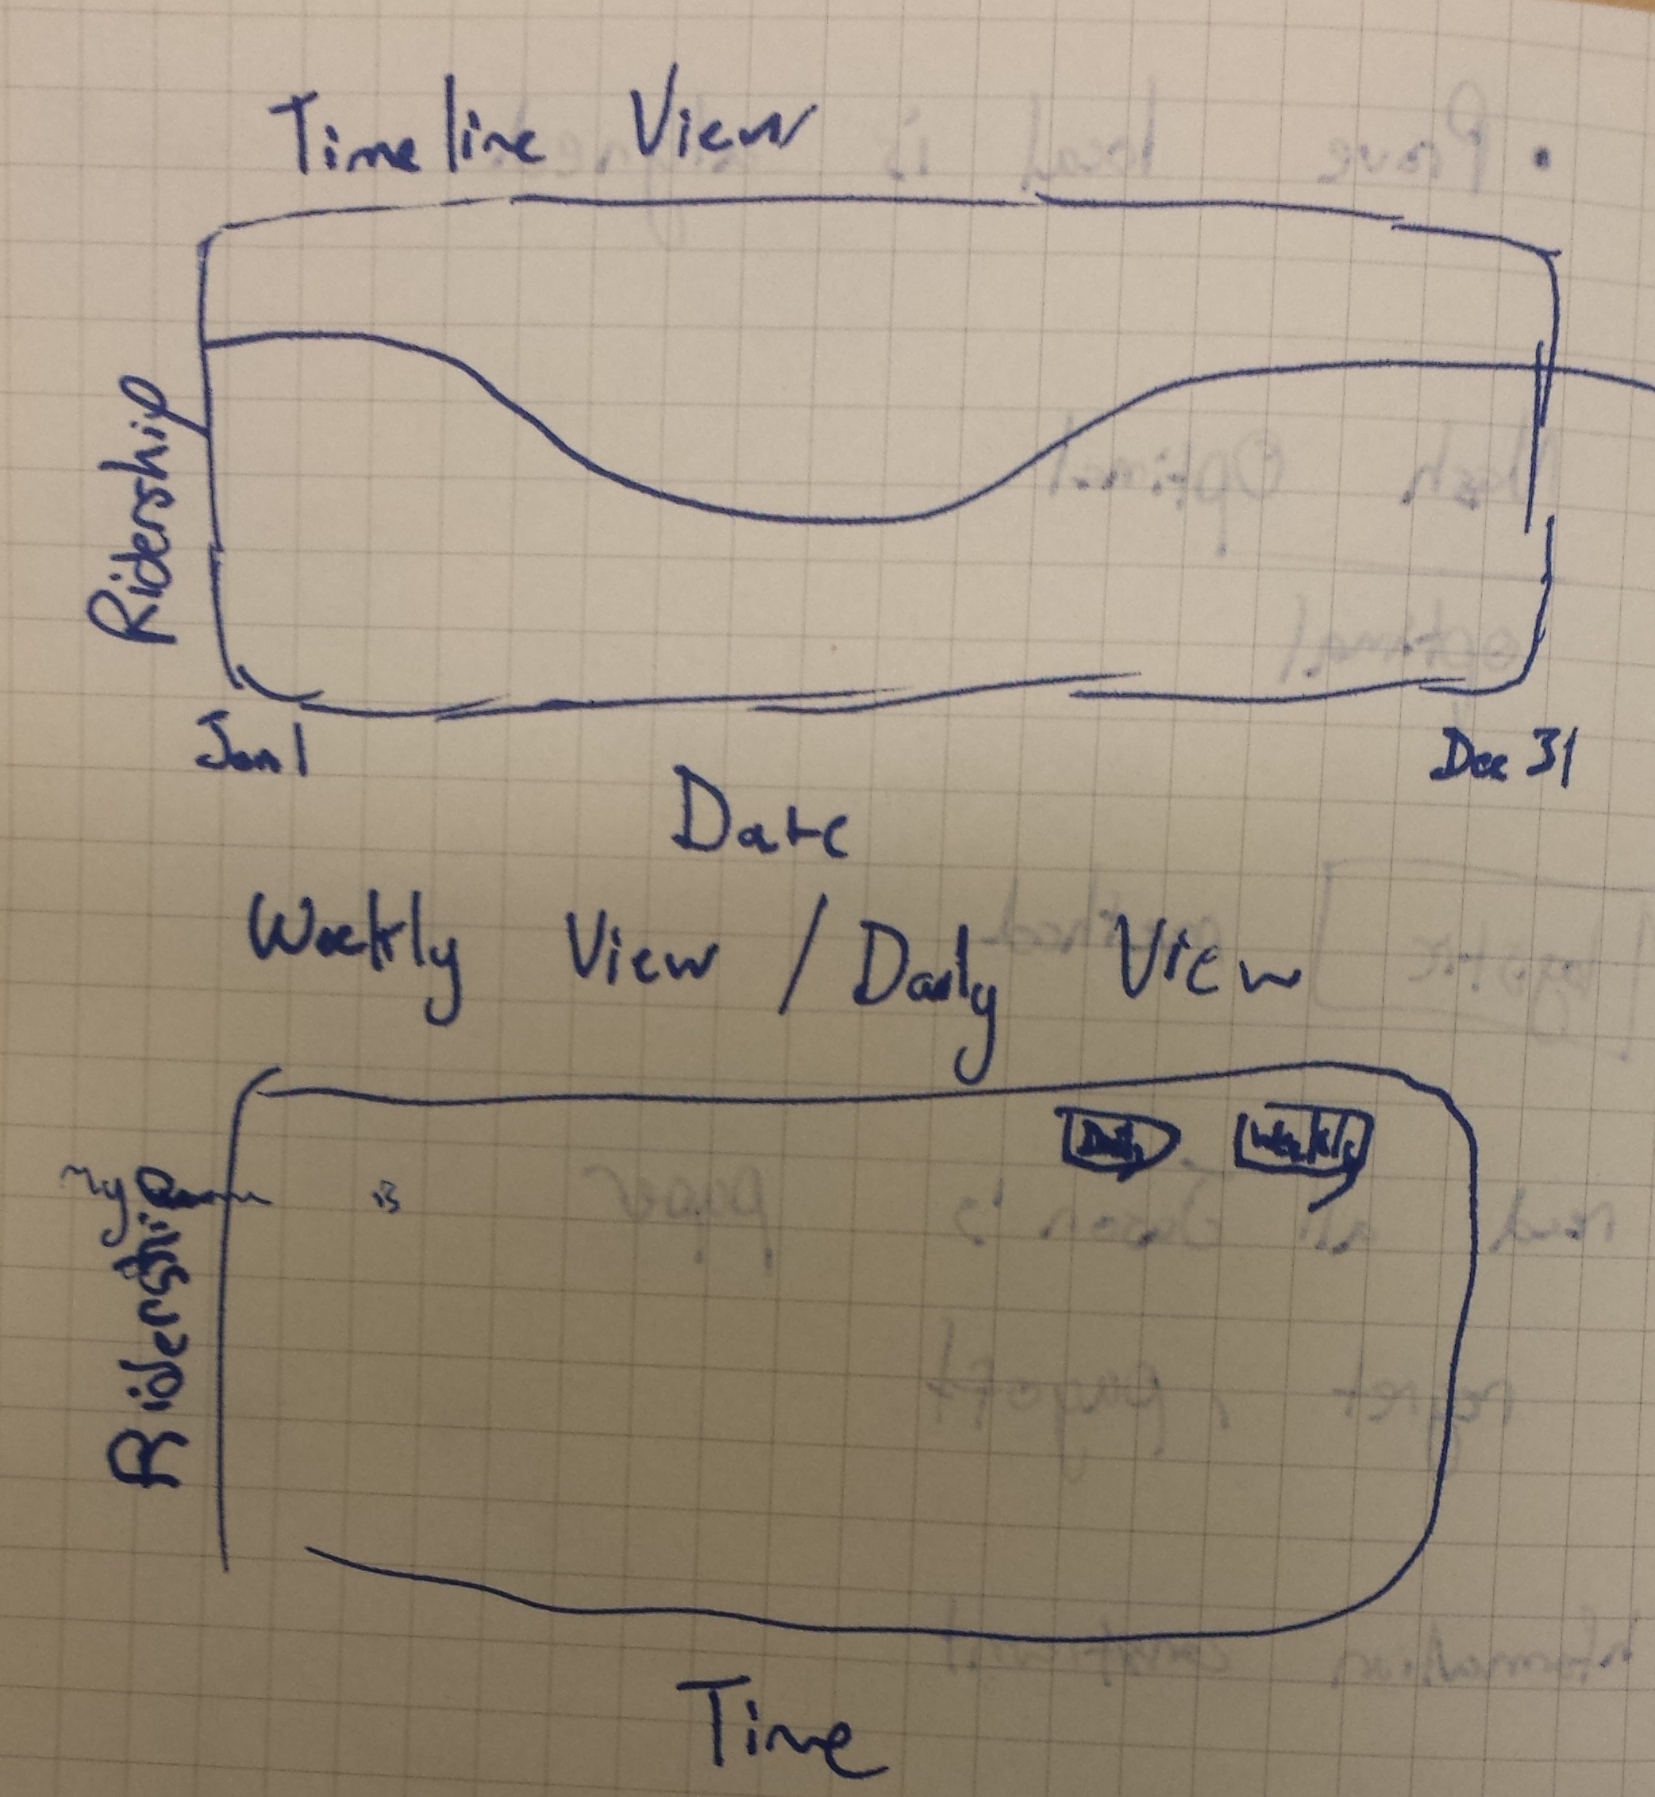 Timeline View
Ridership
Jan 1
Dec 31
Date
Weekly View / Daily View
Daily
Weekly
Ridership
Time